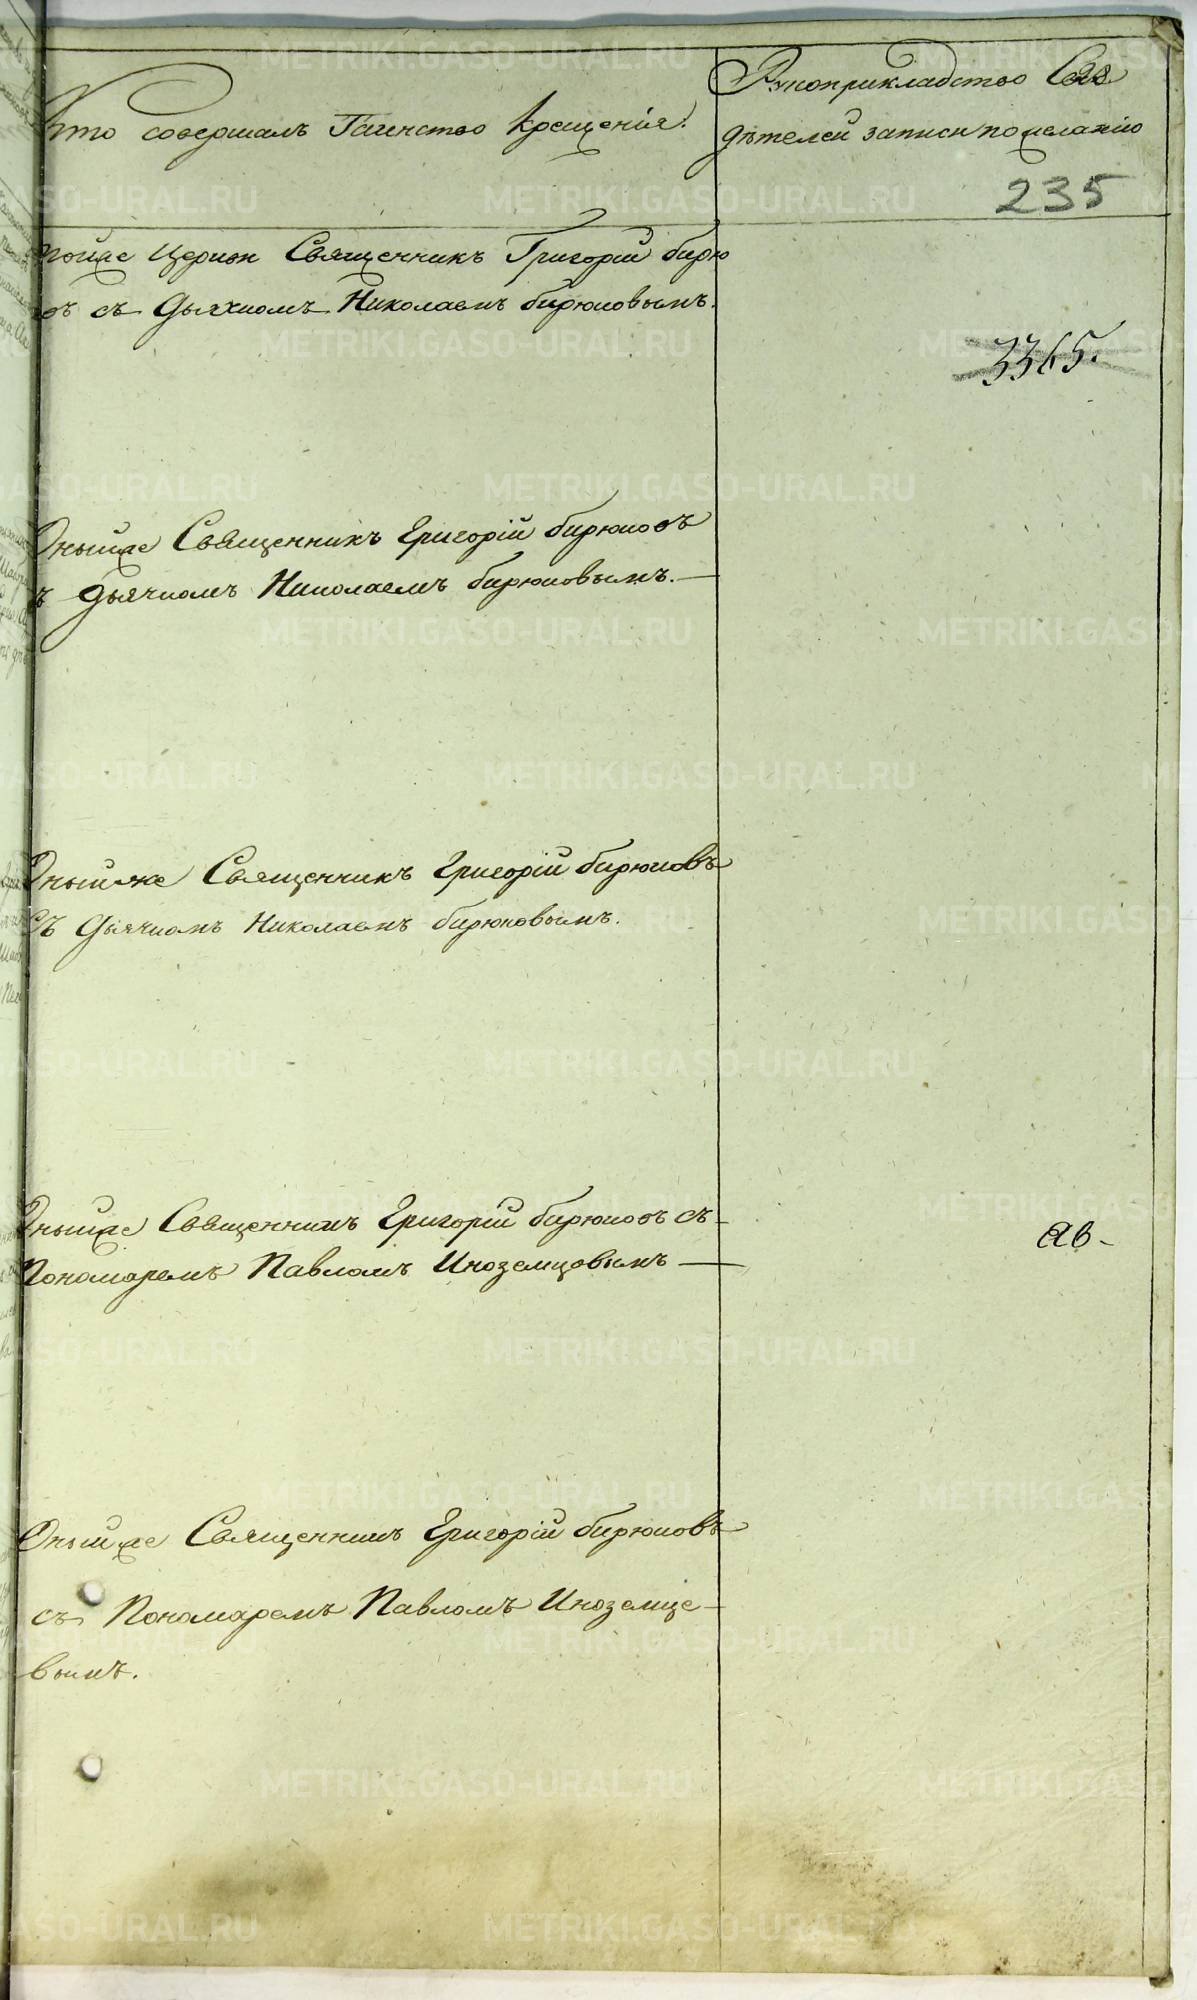 Кто совершалъ Таинство крещенія.
Рукоприкладство Сви
дѣтелей записи по желанію
235
тойже Церкви Священникъ Григорій бирю
овъ съ Дьячкомъ Николаемъ бирюковымъ.
3365.
Оныйже Священникъ Григорій бирюковъ
ъ Дьячкомъ Николаемъ бирюковымъ.—
Оныйже Священникъ Григорій бирюковъ
съ Дьячкомъ Николаемъ бирюковымъ.
Оныйже Священникъ Григорій бирюковъ съ
Пономаремъ Павломъ Иноземцовымъ —
ав-
Оныйже Священникъ Григорій бирюковъ
съ Пономаремъ Павломъ Иноземце-
вымъ.
METRIKI.GASO-URAL.RU